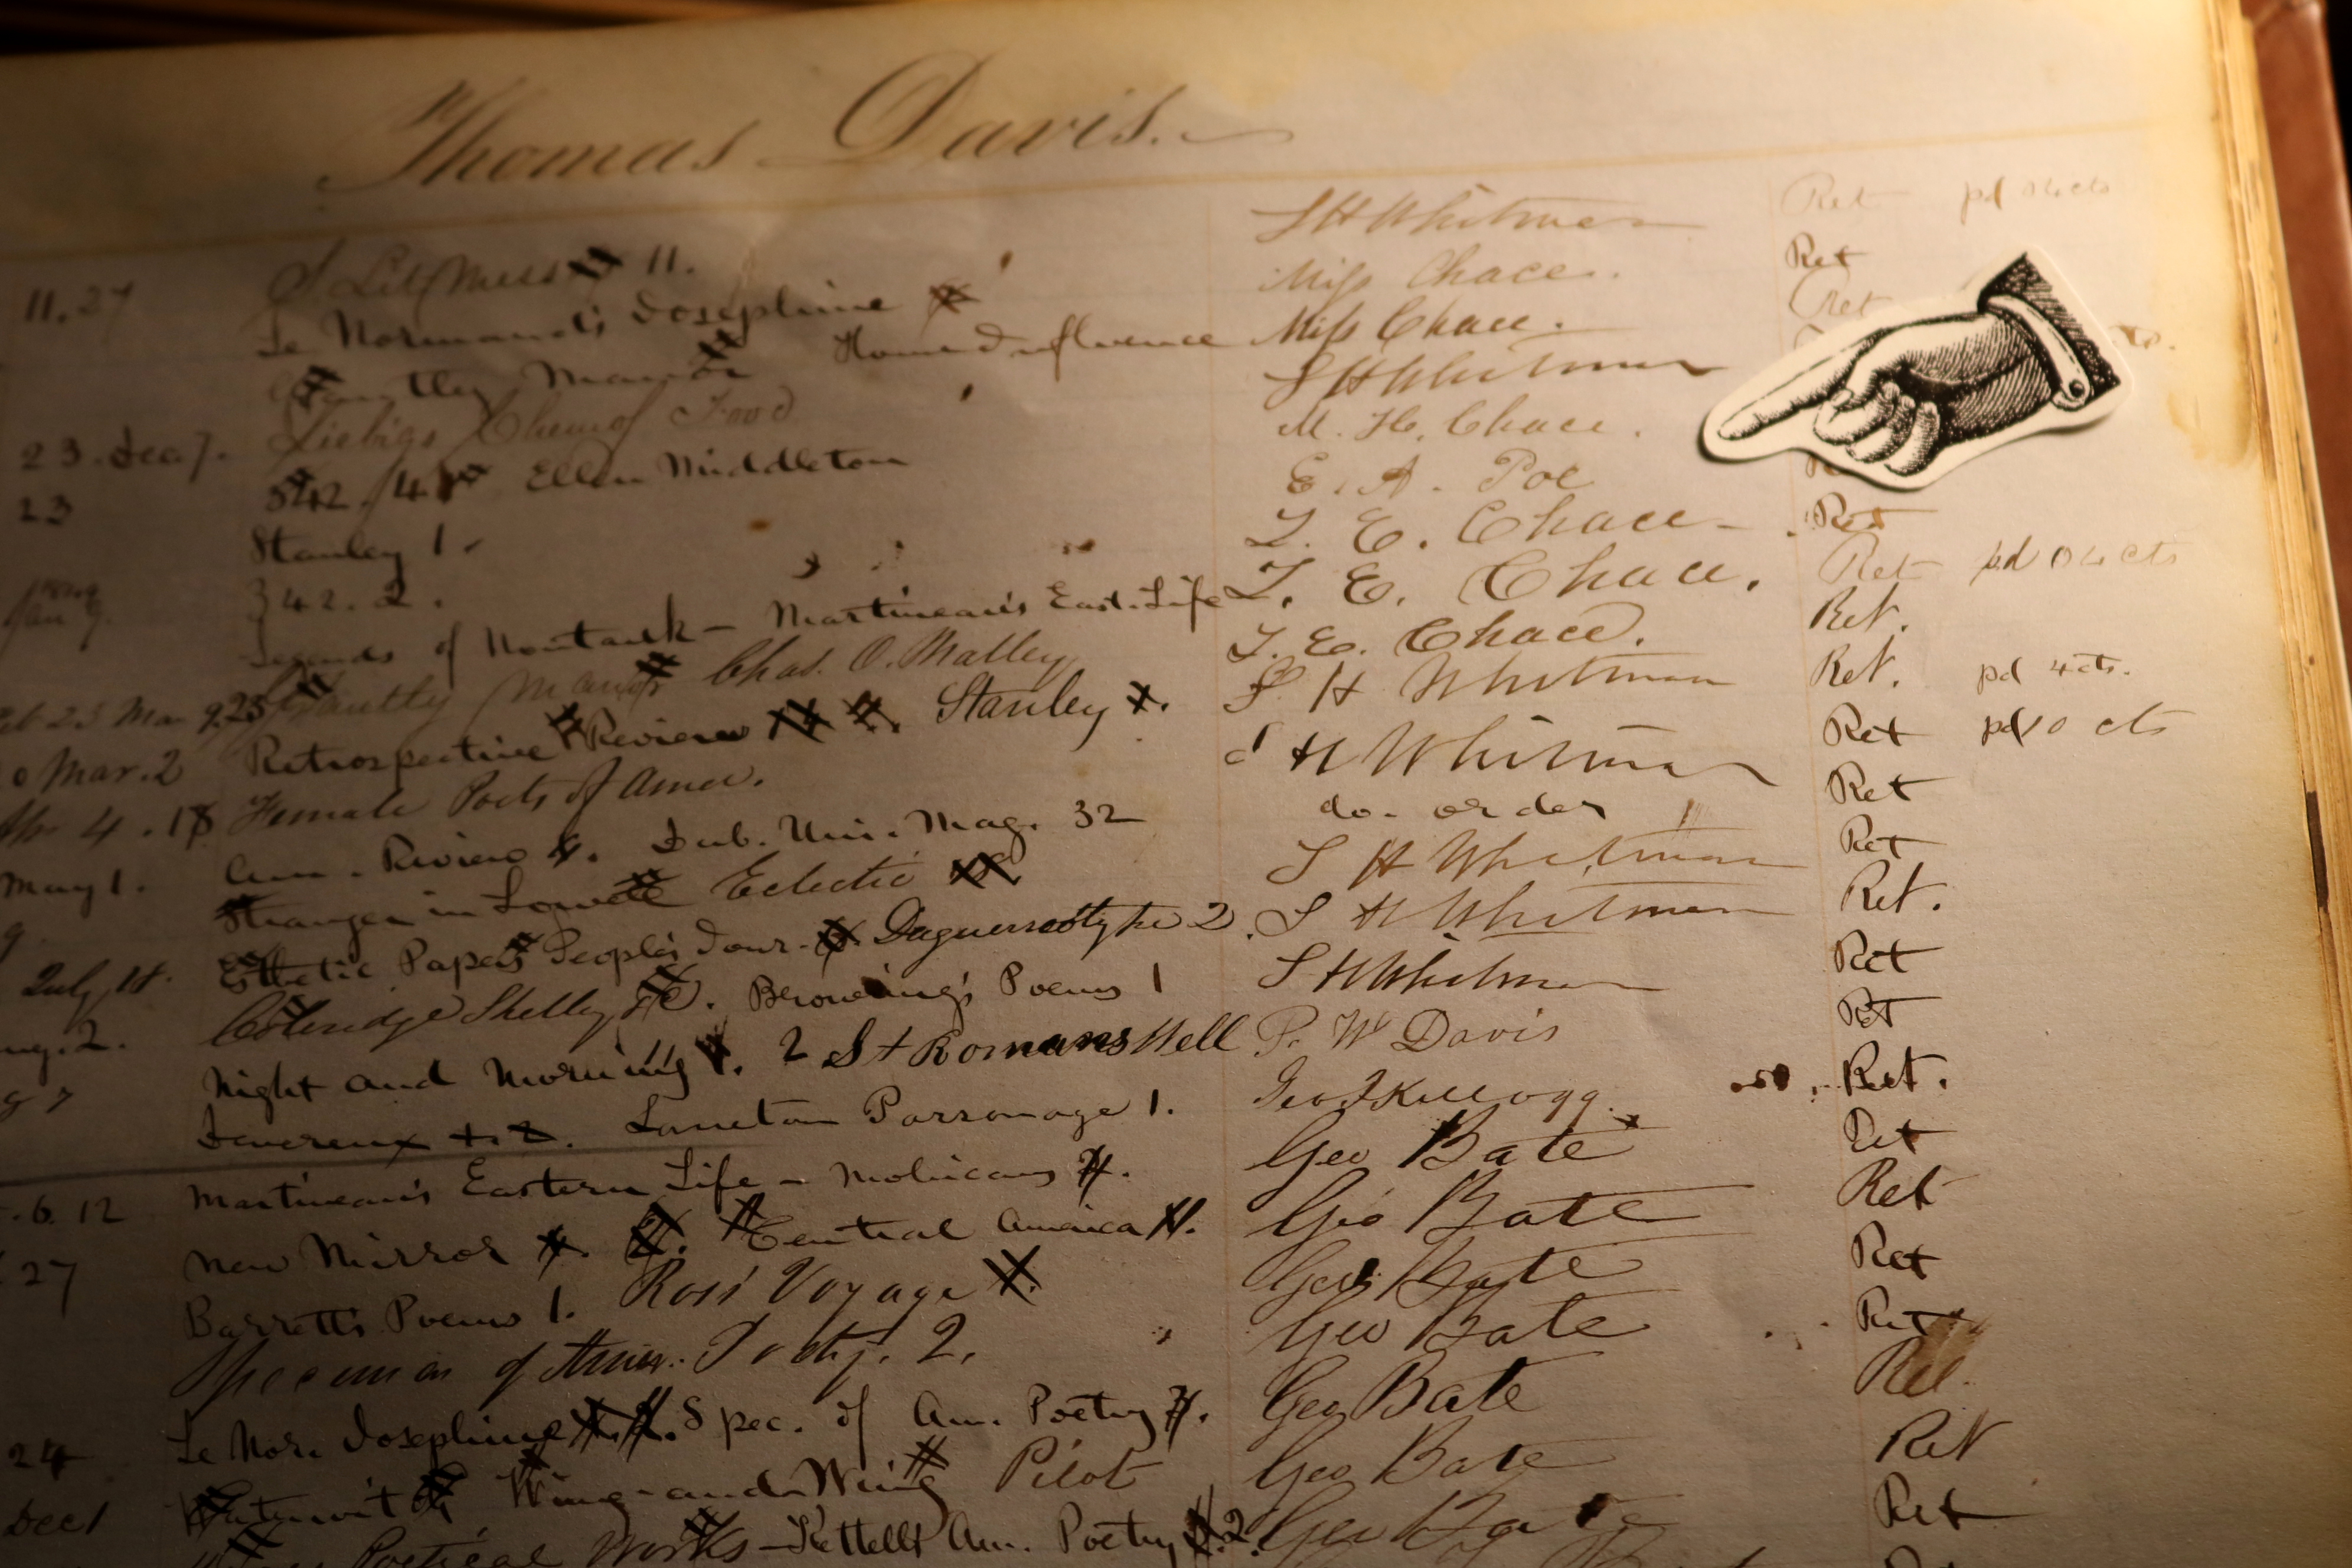 Thomas Davis.
S H Whitman Ret pd
11.27 S. Lit Mess 11. Miss Chace. Ret
Le Normand's Josephine Miss Chace. Ret
Grantley Manor Home Influence S H Whitman
23. Dec 7. Liebigs Chem of Food M. H. Chace.
23 542. 4 Ellen Middleton E. A. Poe
Stanley 1. T. E. Chace Ret
342. 2. T. E. Chace. Ret pd 04 cts
Legends of Montauk — Martineau's East. Life T. E. Chace. Ret.
23 Mar 9, 25 Grantley Manor Chas. O. Malley S H Whitman Ret. pd 4 cts.
Mar. 2 Retrospective Review Stanley S H Whitman Ret pd 10 cts
4. 18 Female Poets of Amer. do. order Ret
May 1. Am. Review Dub. Uni. Mag. 32 S H Whitman Ret
Stranger in Lowell Eclectic S H Whitman Ret.
July 18. Esthetic Papers People's Jour. Daguerreotype 2. S H Whitman Ret
2. Coleridge Shelly &C. Browning's Poems 1 P. W Davis Ret
7 Night and Morning 1. 2 St Romans Well Geo Kellogg Ret.
Devereux 1. 2. Laneton Parsonage 1. Geo Bate Ret
6. 12 Martineau's Eastern Life — Mohicans Geo Bate Ret
27 New Mirror Central America Geo Bate Ret
Barrett's Poems 1. Ross' Voyage Geo Bate Ret
Specimen of Amer. Poetry. 2. Geo Bate Ret.
24 Le Nor. Josephine Spec. of Am. Poetry Geo Bate Ret
Dec 1 Waterwitch Wing-and-Wing Pilot Geo Bate Ret
Poetical Works — Kettell's Am. Poetry 2.